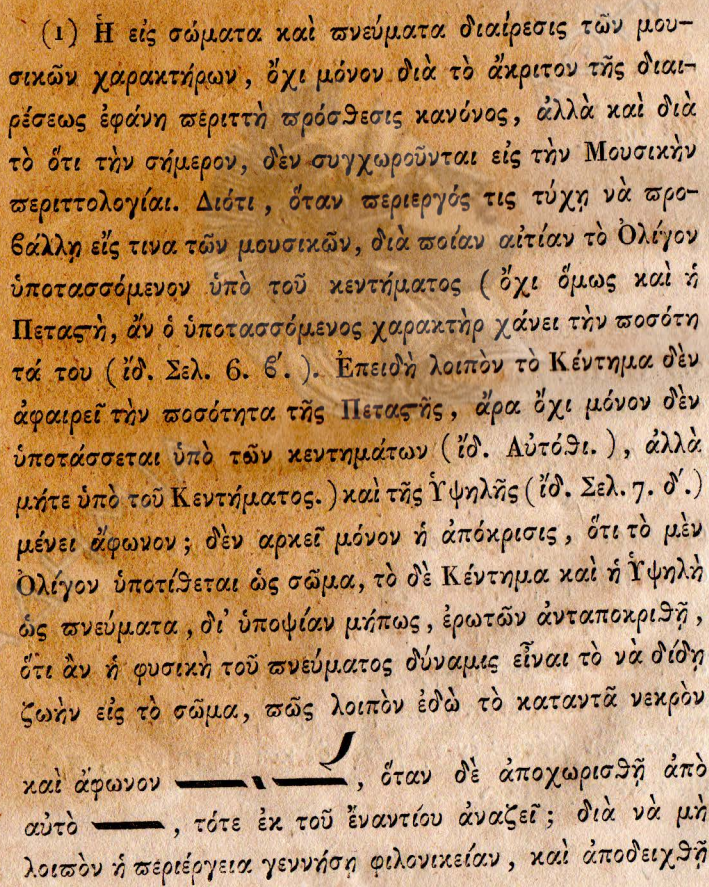 (1) Ἡ εἰς σώματα καὶ πνεύματα διαίρεσις τῶν μου-
σικῶν χαρακτήρων, ὄχι μόνον διὰ τὸ ἄκριτον τῆς διαι-
ρέσεως ἐφάνη περιττὴ πρόσθεσις κανόνος, ἀλλὰ καὶ διὰ
τὸ ὅτι τὴν σήμερον, δὲν συγχωροῦνται εἰς τὴν Μουσικὴν
περιττολογίαι. Διότι, ὅταν περιεργός τις τύχῃ νὰ προ-
βάλλῃ εἴς τινα τῶν μουσικῶν, διὰ ποίαν αἰτίαν τὸ Ὀλίγον
ὑποτασσόμενον ὑπὸ τοῦ κεντήματος (ὄχι ὅμως καὶ ἡ
Πεταστὴ, ἄν ὁ ὑποτασσόμενος χαρακτὴρ χάνει τὴν ποσότη
τά του (ἴδ. Σελ. 6. β'.). Ἐπειδὴ λοιπὸν τὸ Κέντημα δὲν
ἀφαιρεῖ τὴν ποσότητα τῆς Πεταστῆς, ἄρα ὄχι μόνον δὲν
ὑποτάσσεται ὑπὸ τῶν κεντημάτων (ἴδ. Αὐτόθι.), ἀλλὰ
μήτε ὑπὸ τοῦ Κεντήματος.) καὶ τῆς Ὑψηλῆς (ἴδ. Σελ. 7. δ'.)
μένει ἄφωνον; δὲν αρκεῖ μόνον ἡ ἀπόκρισις, ὅτι τὸ μὲν
Ὀλίγον ὑποτίθεται ὡς σῶμα, τὸ δὲ Κέντημα καὶ ἡ Ὑψηλὴ
ὡς πνεύματα, δι' ὑποψίαν μήπως, ἐρωτῶν ἀνταποκριθῇ,
ὅτι ἂν ἡ φυσικὴ τοῦ πνεύματος δύναμις εἶναι τὸ νὰ δίδῃ
ζωὴν εἰς τὸ σῶμα, πῶς λοιπὸν ἐδὼ τὸ καταντᾶ νεκρὸν
καὶ ἄφωνον , ὅταν δὲ ἀποχωρισθῇ ἀπὸ
αὐτὸ , τότε ἐκ τοῦ ἔναντίου ἀναζεῖ; διὰ νὰ μὴ
λοιπὸν ἡ περιέργεια γεννήσῃ φιλονικείαν, καὶ ἀποδειχθῇ